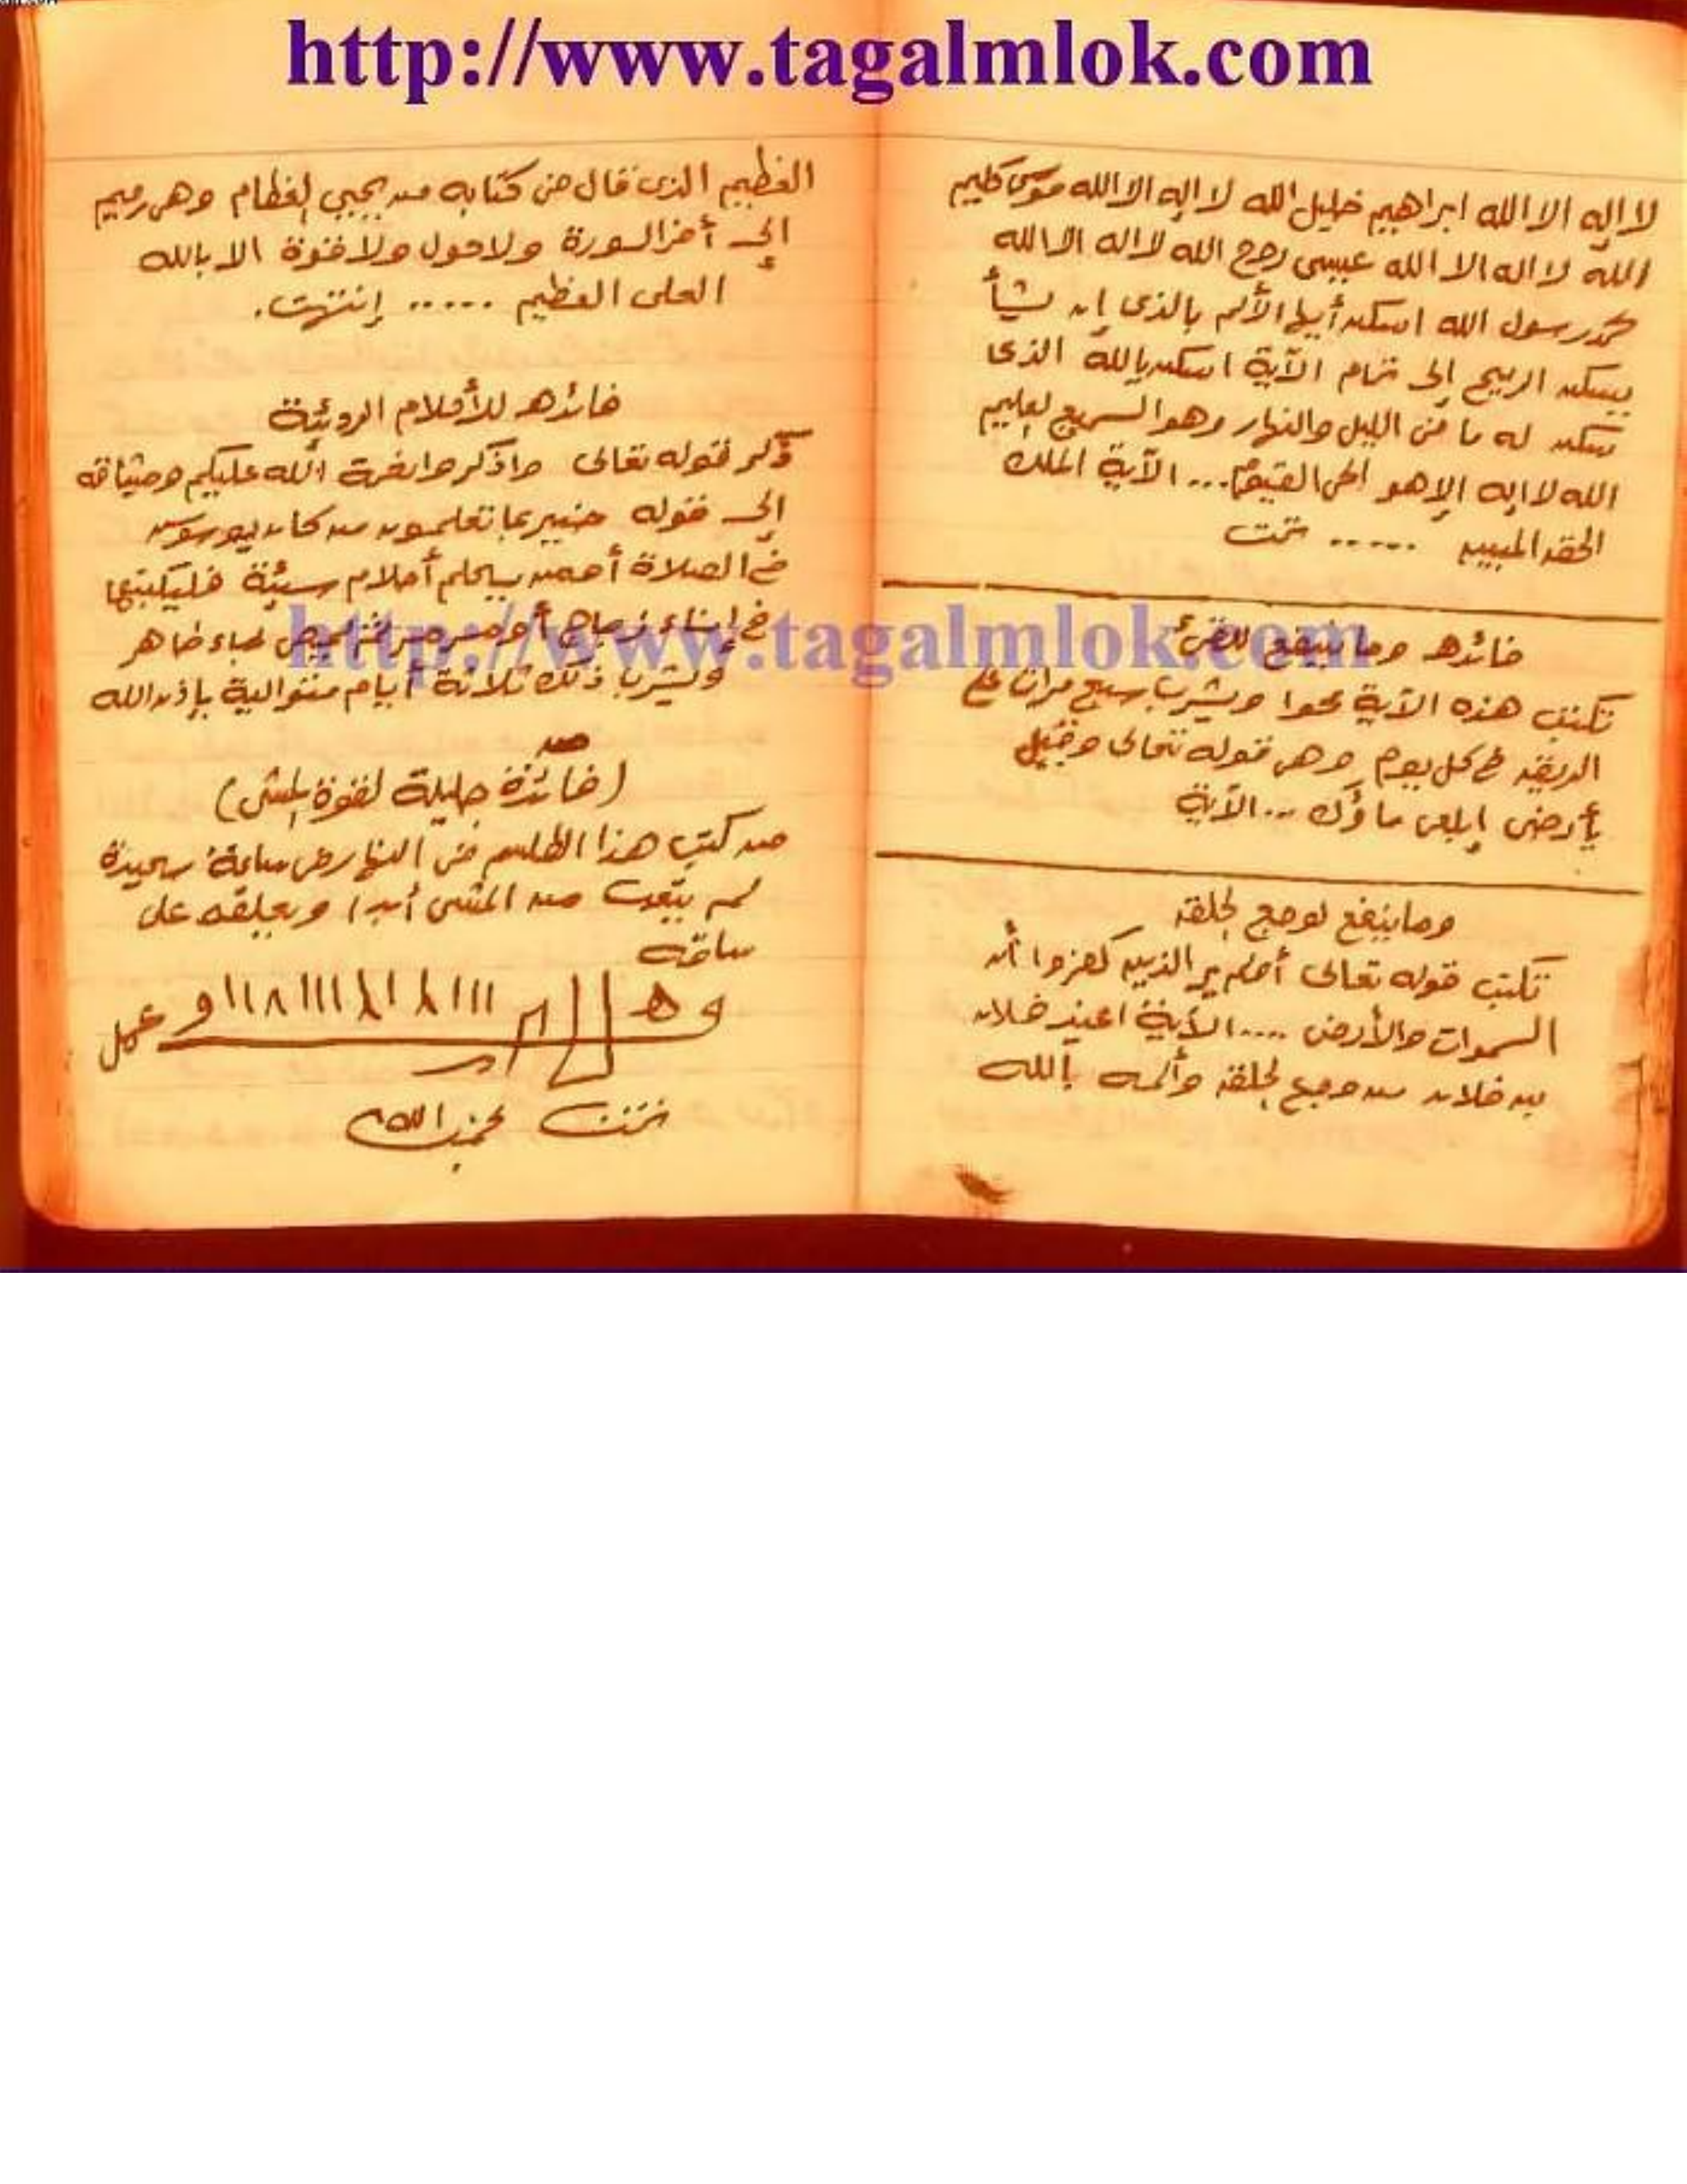 http://www.tagalmlok.com
لا إله الا الله ابراهيم خليل الله لا إله الا الله موسى كليم
الله لا اله الا الله عيسى روح الله لا اله الا الله
محمد رسول الله اسكن أيها الألم بالذى إن يشأ
يسكن الريح إلى تمام الآية اسكن بالله الذى
سكن له ما فى الليل والنهار وهو السميع العليم
الله لا إله إلا هو الحى القيوم... الآية الملك
الحق المبين ...... تمت
فائده وما ينفع للقىء
تكتب هذه الآية محوا ويشرب سبع مرات على
الريق فى كل يوم وهى قوله تعالى وقيل
يأرضى إبلعى ماؤك ... الآية
وما ينفع لوجع الحلق
تكتب قوله تعالى أولم ير الذين كفروا أن
السموات والأرض .... الآية اعيذ فلان
بن فلان من وجع الحلق وألمه بالله
العظيم الذى قال فى كتابه من يحيى العظام وهى رميم
إلى أخر السورة ولا حول ولا قوة الا بالله
العلى العظيم ..... إنتهت.
فائده للأحلام الرديئة
ذكر قوله تعالى واذكروا نعمة الله عليكم وميثاقه
إلى قوله خبير بما تعلمون من كان يوسوس
فى الصلاة أو من يحلم أحلام سيئة فليكتبها
فى إناء زجاج أو ثم يمحى بماء طاهر
ويشرب ذلك ثلاثة أيام متوالية بإذن الله
http://www.tagalmlok.com
صد
(فائدة جليلة لقوة المشى)
من كتب هذا الطلسم فى النهار فى ساعة سعيدة
لم يتعب من المشى أبدا ويعلقه على
ساقه
تمت بحمد الله